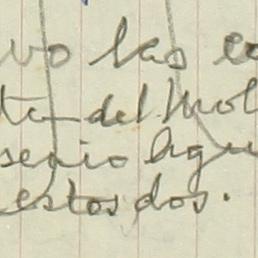 vo las co
ta del Mol
senio Agu
estos dos.